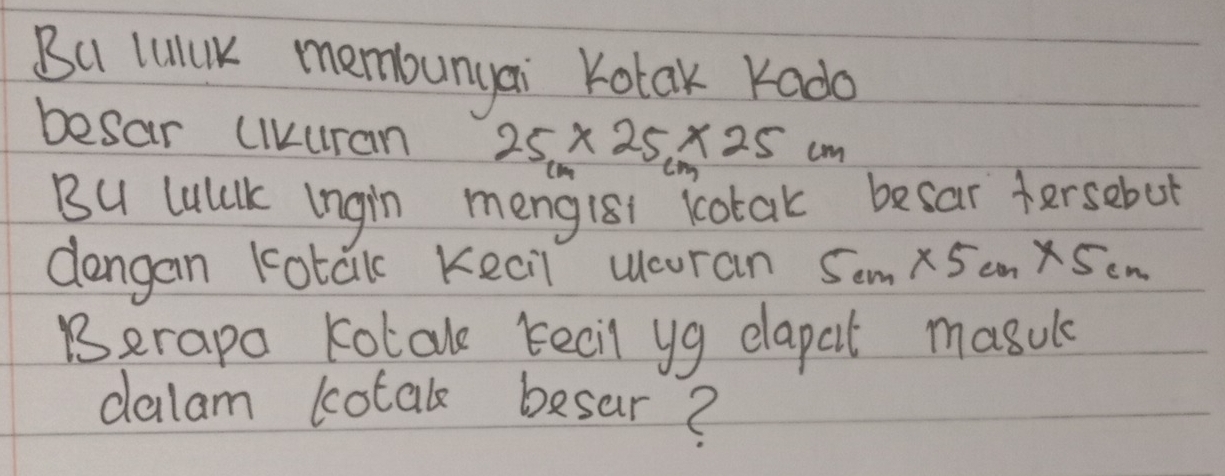 Bu luluk membunyai kotak kado
besar ukuran 25 cm x 25 cm x 25 cm
Bu luluk ingin mengisi kotak besar tersebut
dengan kotak kecil ukuran 5 cm x 5 cm x 5 cm
Berapa kotak kecil yg dapat masuk
dalam kotak besar ?